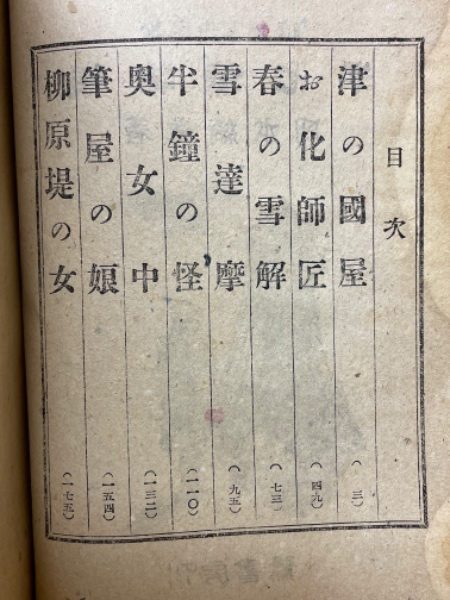 目次
津の國屋 (三)
お化師匠 (四九)
春の雪解 (七三)
雪達摩 (九五)
半鐘の怪 (一一〇)
奥女中 (一三二)
筆屋の娘 (一五四)
柳原堤の女 (一七五)